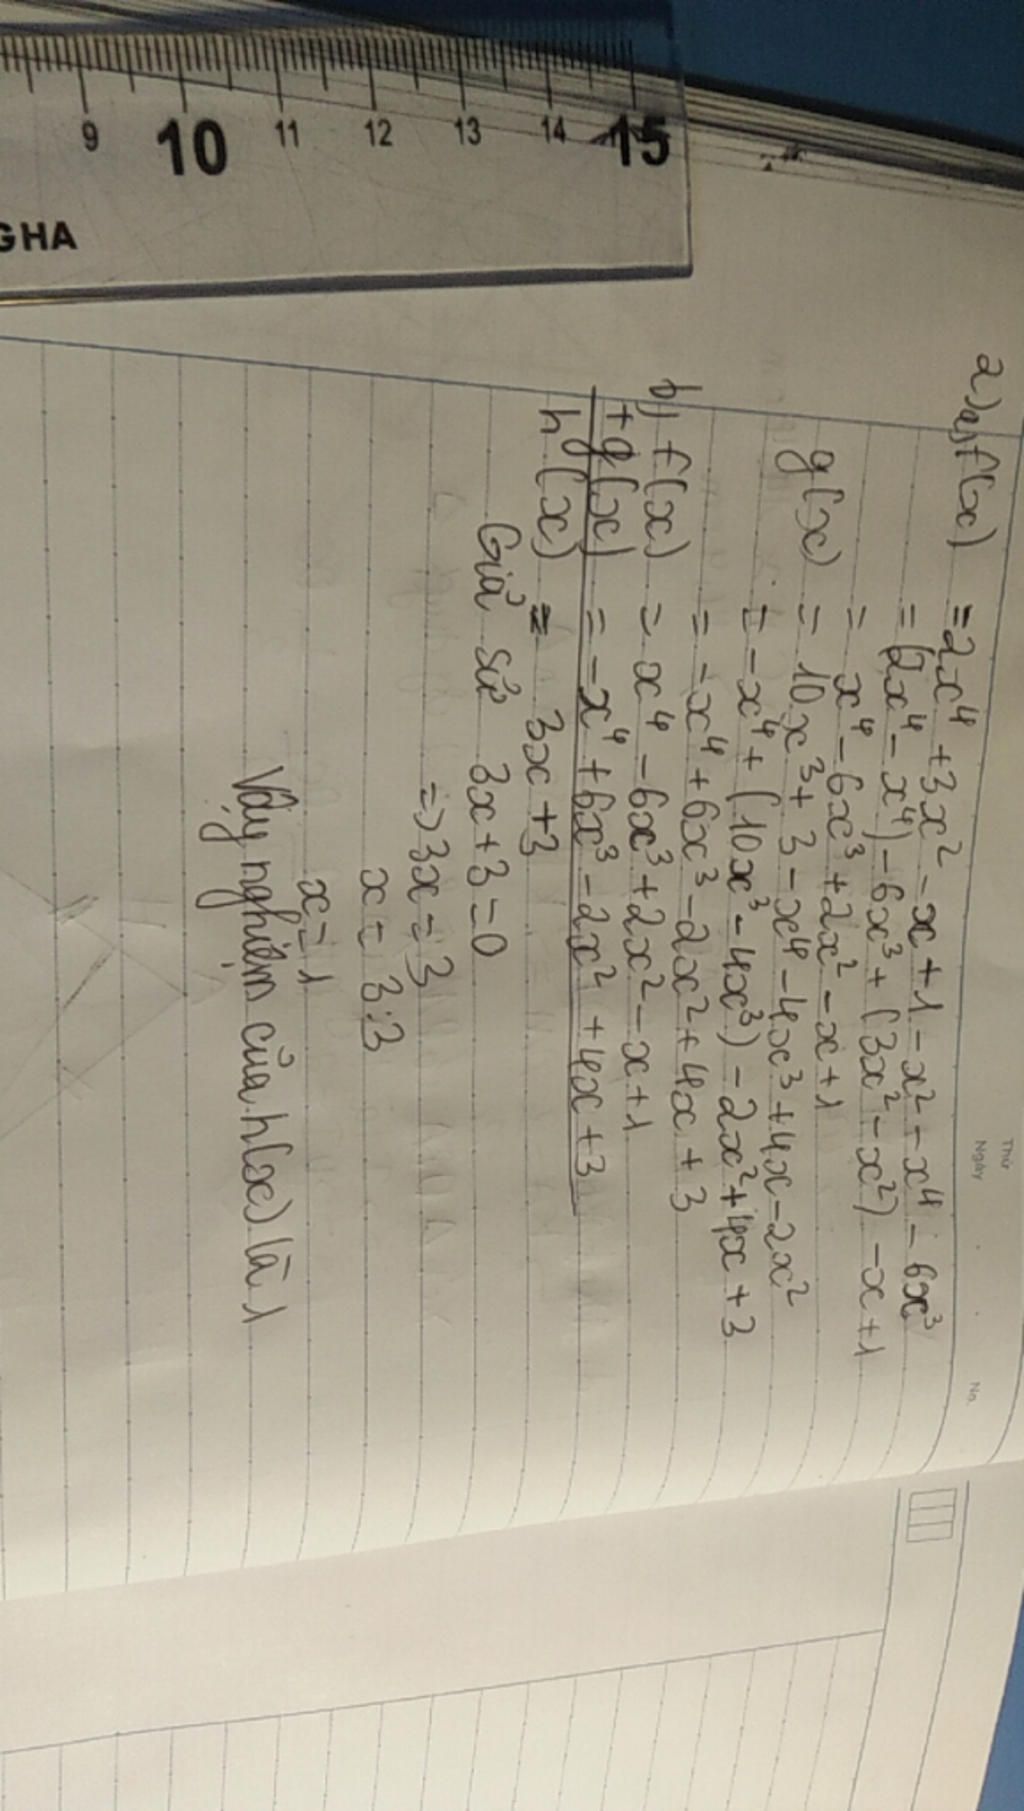 9 10 11 12 13 14 15
GHA
Thứ
Ngày
No.
2) a) f(x) = 2x⁴ + 3x² - x + 1 - x² - x⁴ - 6x³
= (2x⁴ - x⁴) - 6x³ + (3x² - x²) - x + 1
= x⁴ - 6x³ + 2x² - x + 1
g(x) = 10x³ + 3 - x⁴ - 4x³ + 4x - 2x²
= -x⁴ + (10x³ - 4x³) - 2x² + 4x + 3
= -x⁴ + 6x³ - 2x² + 4x + 3
b) f(x) = x⁴ - 6x³ + 2x² - x + 1
+ g(x) = -x⁴ + 6x³ - 2x² + 4x + 3
h(x) = 3x + 3
Giả sử 3x + 3 = 0
=> 3x = 3
x = 3:3
x = 1
Vậy nghiệm của h(x) là 1